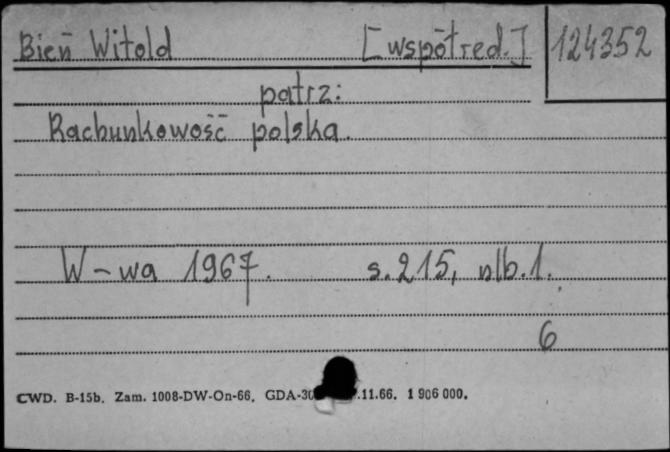 Bień Witold [współred.] 124352
patrz:
Rachunkowość polska.
W-wa 1967. s. 215, nlb. 1.
6
CWD. B-15b. Zam. 1008-DW-On-66. GDA-30 .11.66. 1 906 000.